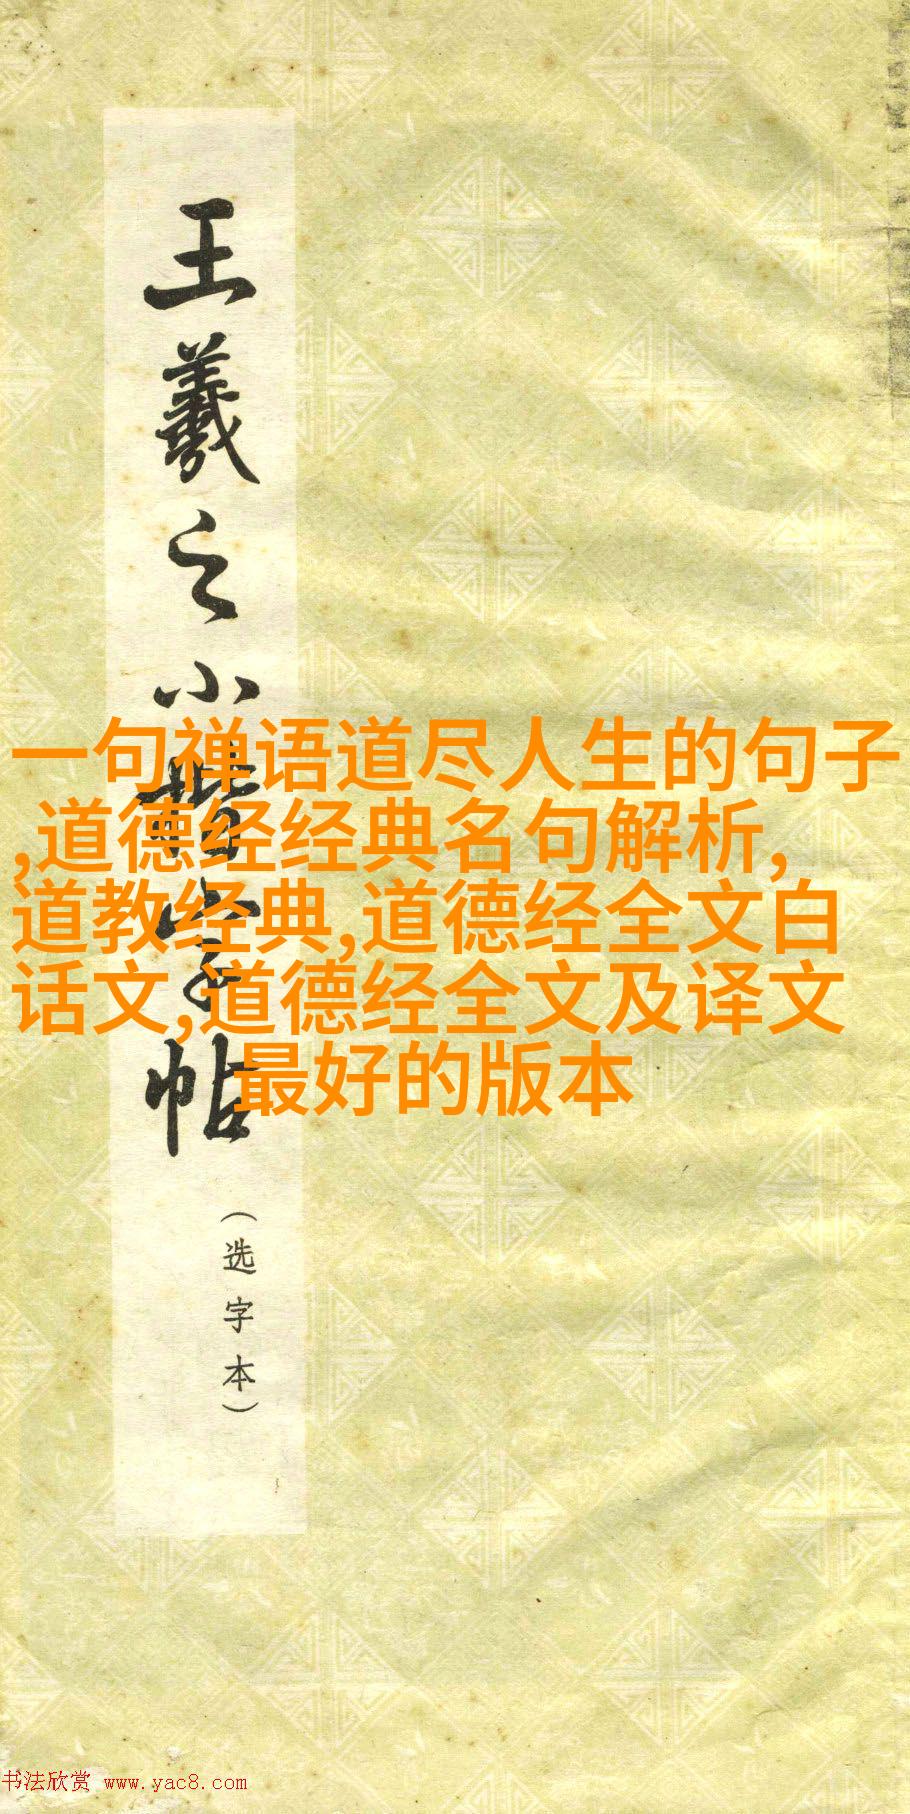 王羲之小楷字帖
(选字本)
一句禅语道尽人生的句子
,道德经经典名句解析,
道教经典,道德经全文白
话文,道德经全文及译文
最好的版本
书法欣赏 www.yac8.com